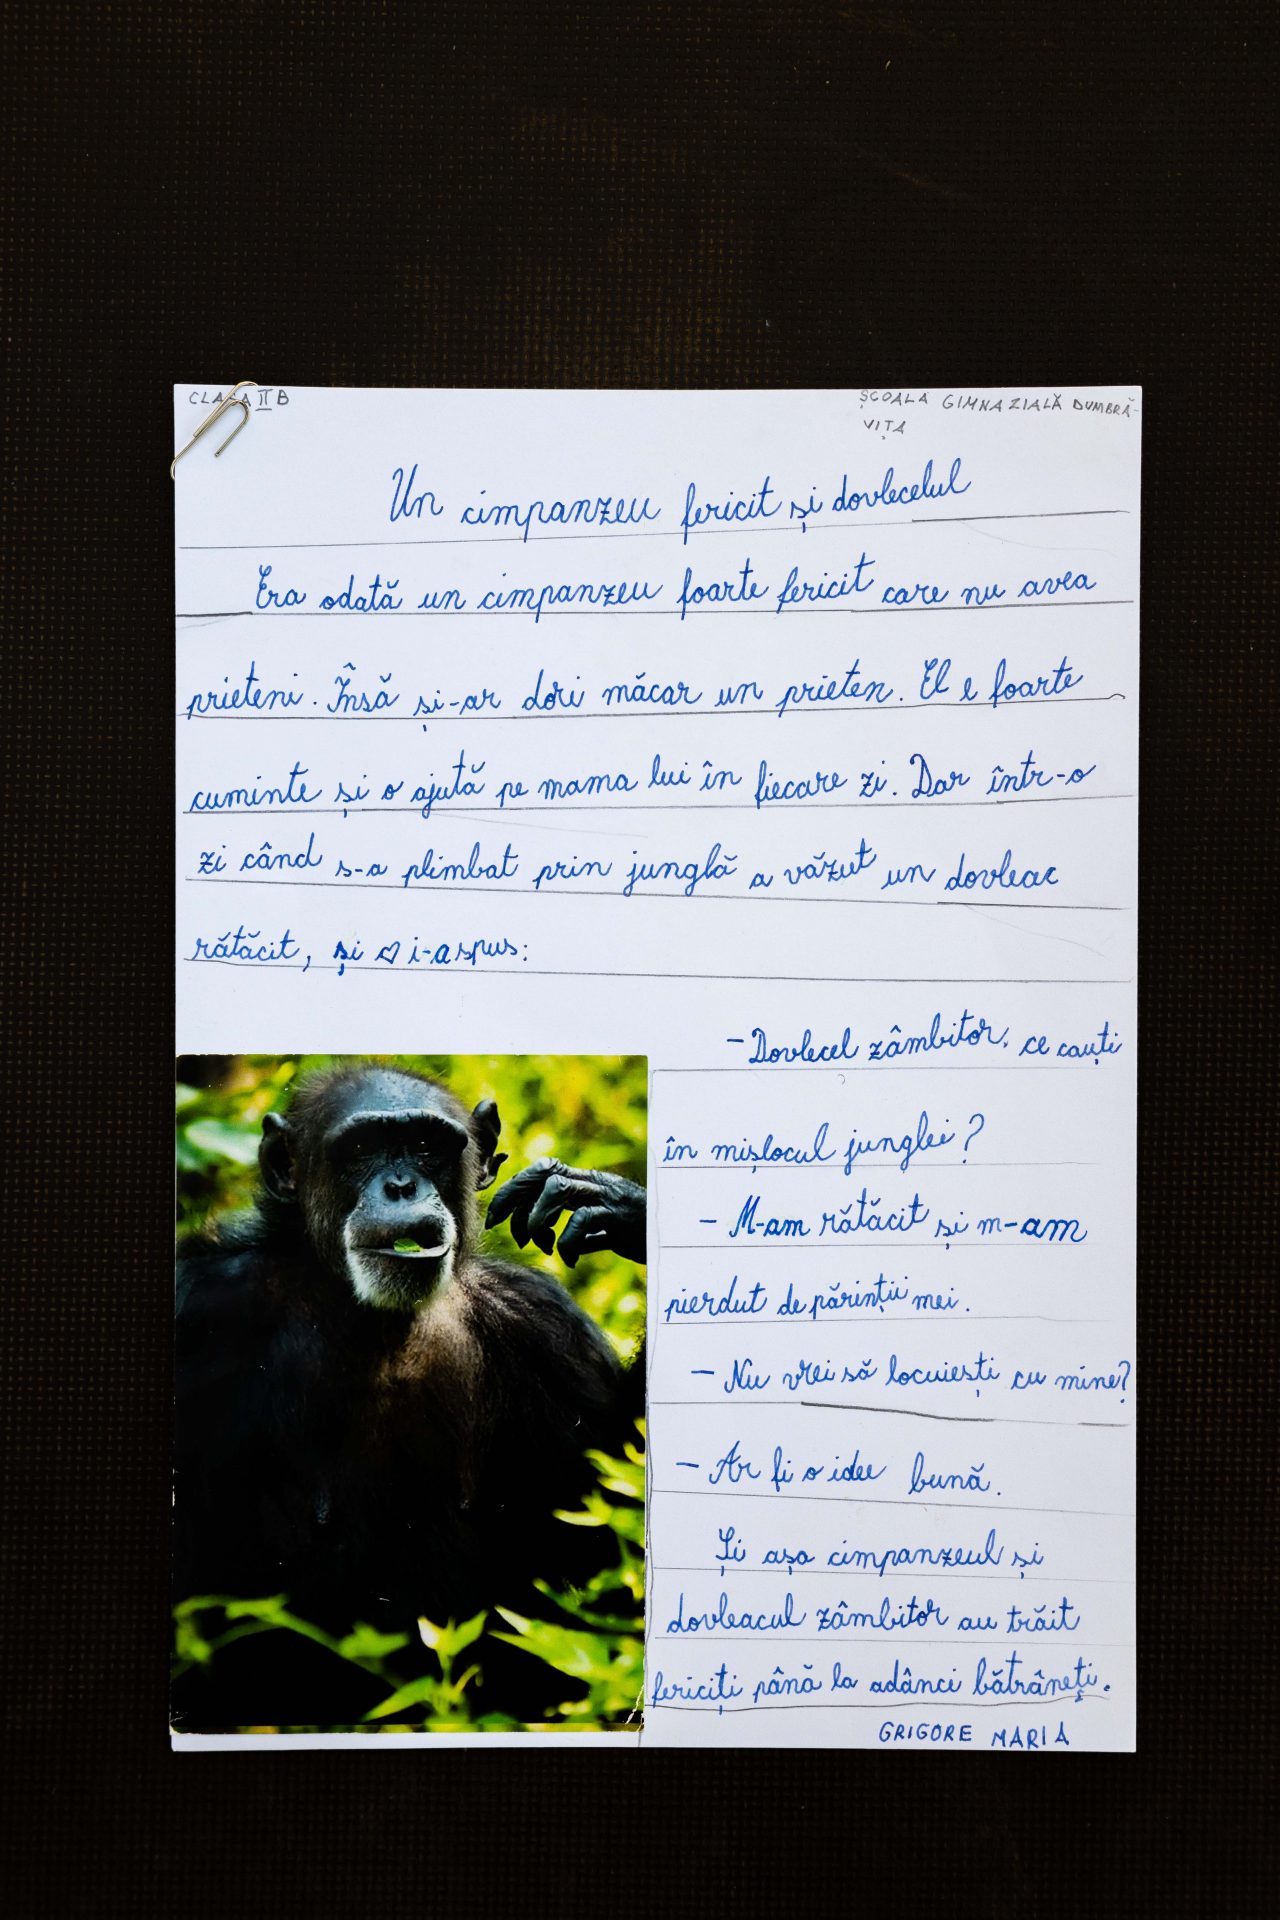 CLASA II B
ȘCOALA GIMNAZIALĂ DUMBRĂ-
VIȚA
Un cimpanzeu fericit și dovlecelul
Era odată un cimpanzeu foarte fericit care nu avea
prieteni. Însă și-ar dori măcar un prieten. El e foarte
cuminte și o ajută pe mama lui în fiecare zi. Dar într-o
zi când s-a plimbat prin junglă a văzut un dovleac
rătăcit, și ♡ i-a spus:
- Dovlecel zâmbitor, ce cauți
în mișlocul junglei?
- M-am rătăcit și m-am
pierdut de părinții mei.
- Nu vrei să locuiești cu mine?
- Ar fi o idee bună.
Și așa cimpanzeul și
dovleacul zâmbitor au trăit
fericiți până la adânci bătrâneți.
GRIGORE MARIA